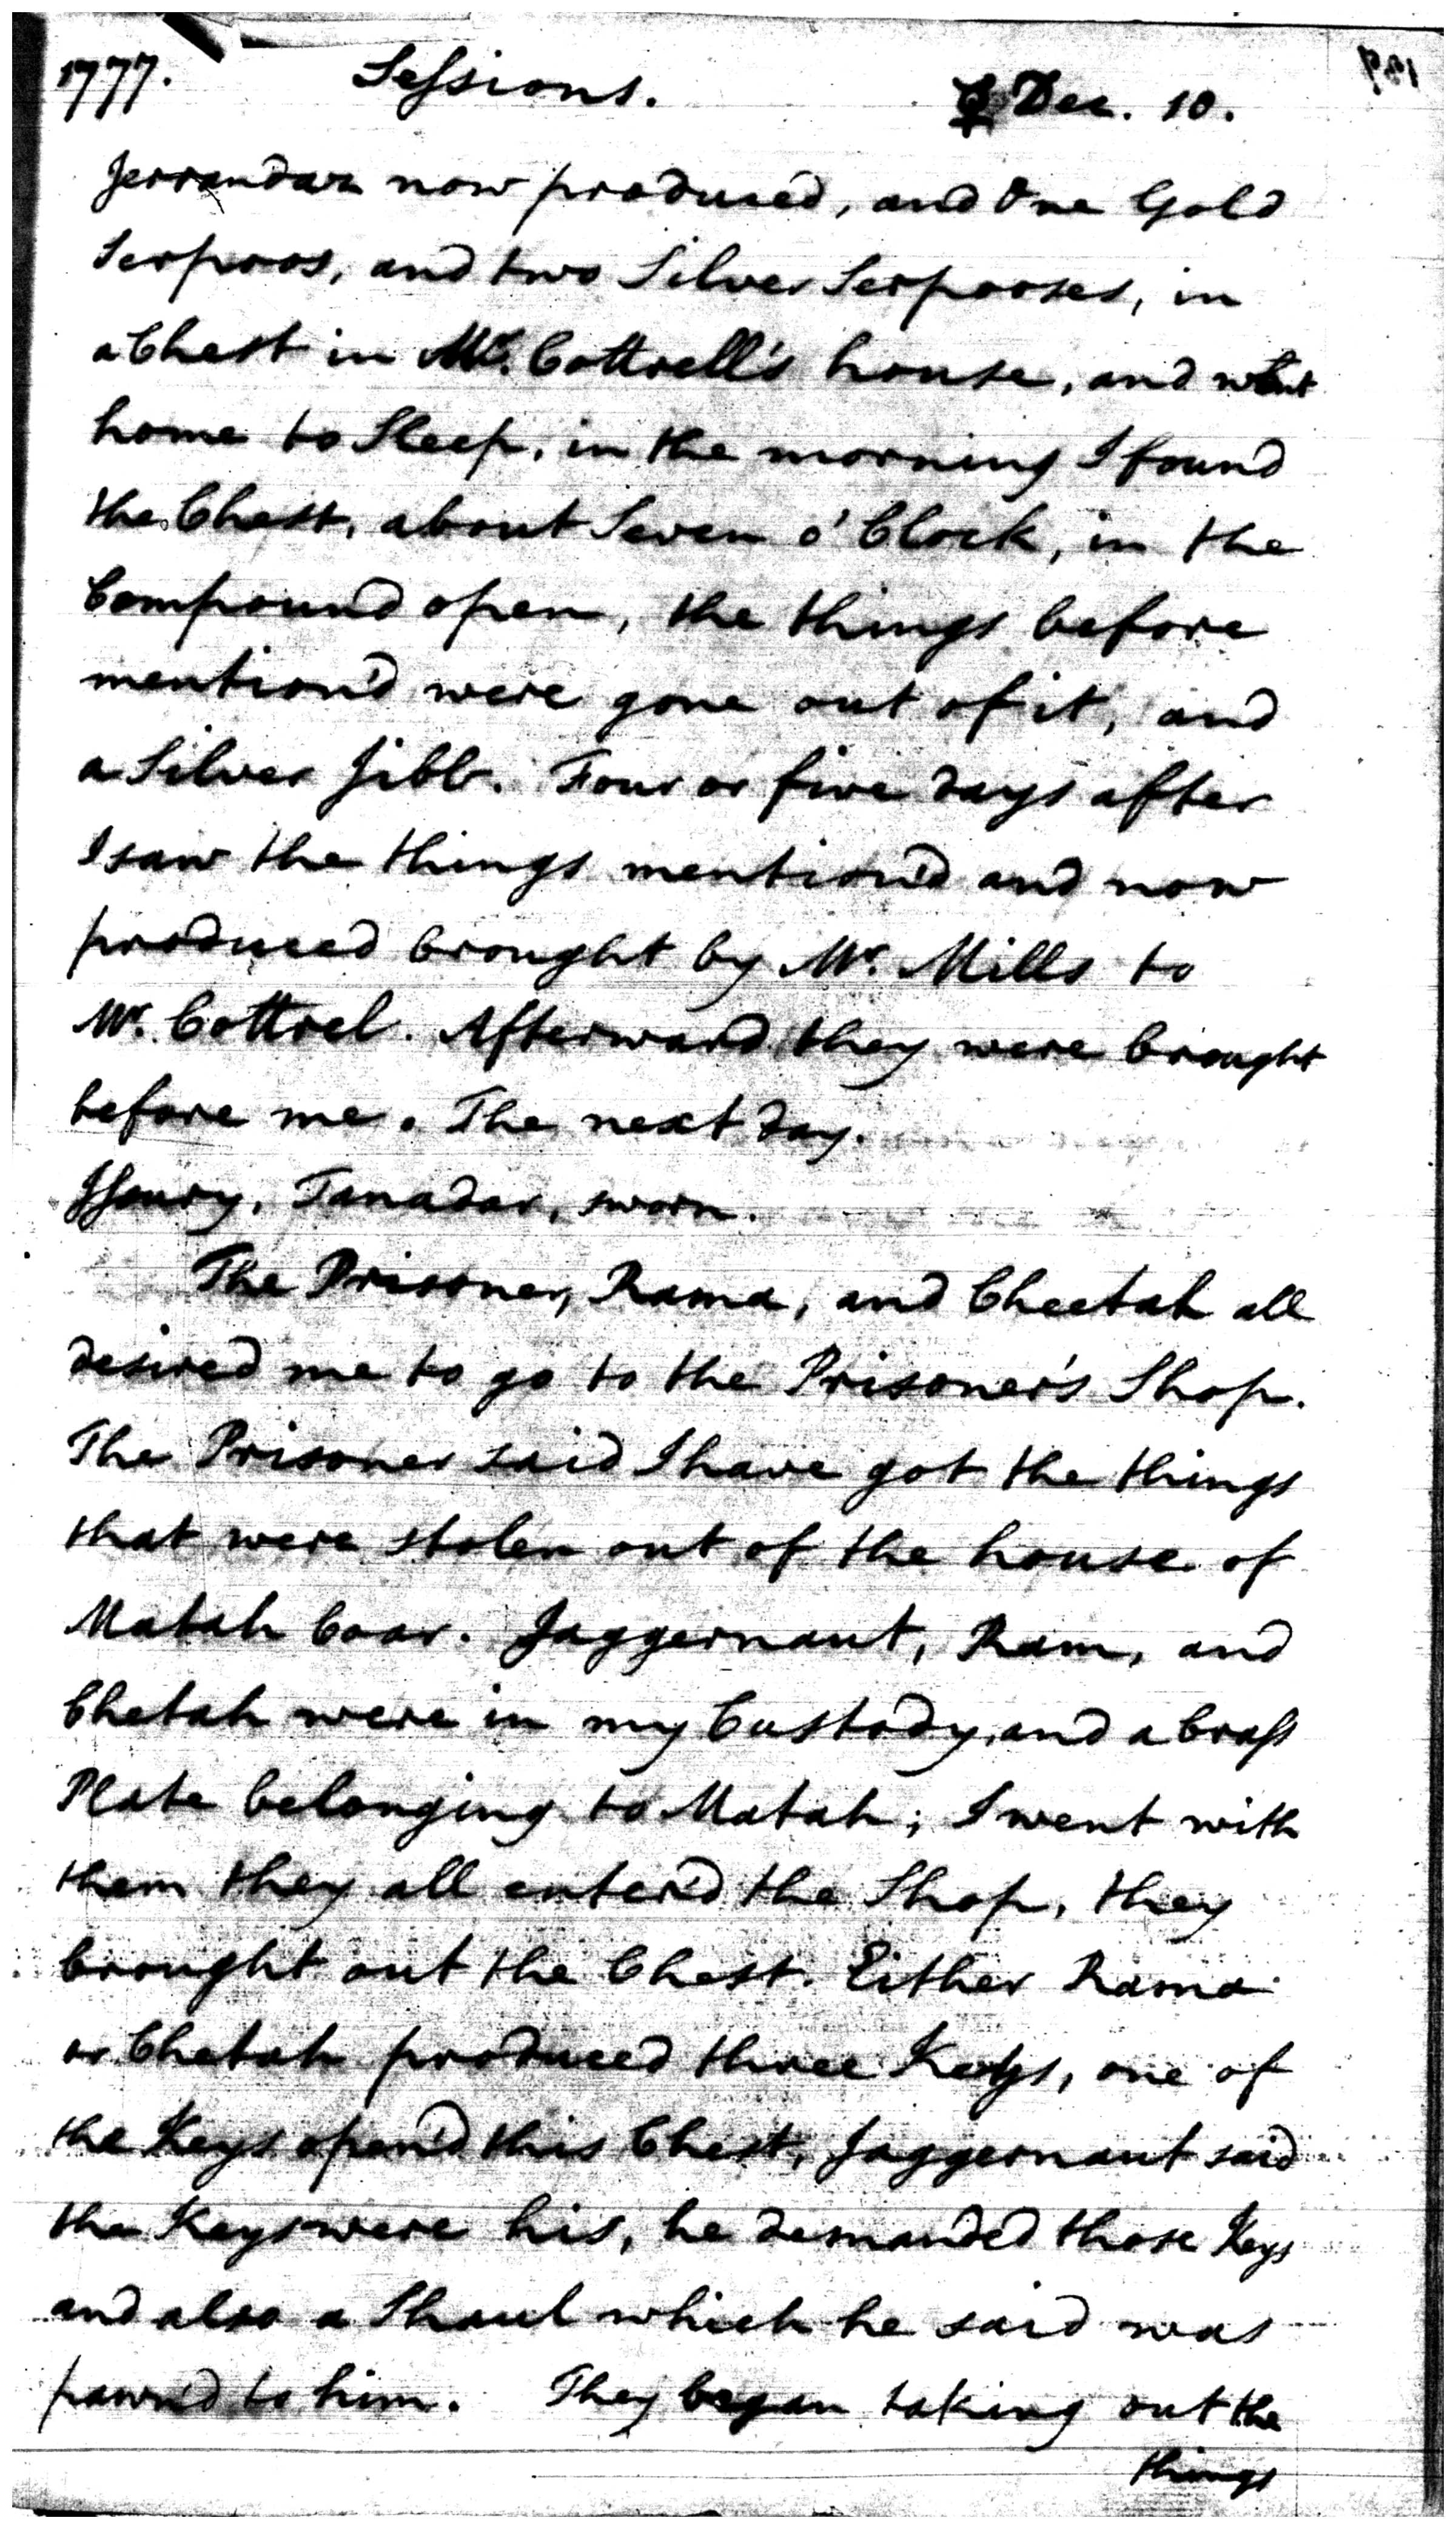 1777. Sessions. ☿ Dec. 10.
Jerrandar now produced, and One Gold
Serpoos, and two Silver Serpooses, in
a Chest in Mr. Cottrell's house, and went
home to Sleep, in the morning I found
the Chest, about Seven o'Clock, in the
Compound open, the things before
mention'd were gone out of it, and
a Silver Jibb. Four or five days after
I saw the things mention'd and now
produced brought by Mr. Mills to
Mr. Cottrel. Afterward they were brought
before me. The next day.
Tanadar, sworn.
The Prisoner, Rama, and Cheetah all
desired me to go to the Prisoner's Shop.
The Prisoner said I have got the things
that were stolen out of the house of
Matah Coar. Jaggernaut, Ram, and
Chetah were in my Custody, and a brass
Plate belonging to Matah; I went with
them they all enter'd the Shop, they
brought out the Chest. Either Rama
or Chetah produced three Keys, one of
the Keys open'd this Chest, Jaggernaut said
the Keys were his, he demanded those Keys
and also a Shaul which he said was
pawn'd to him. They began taking out the
things